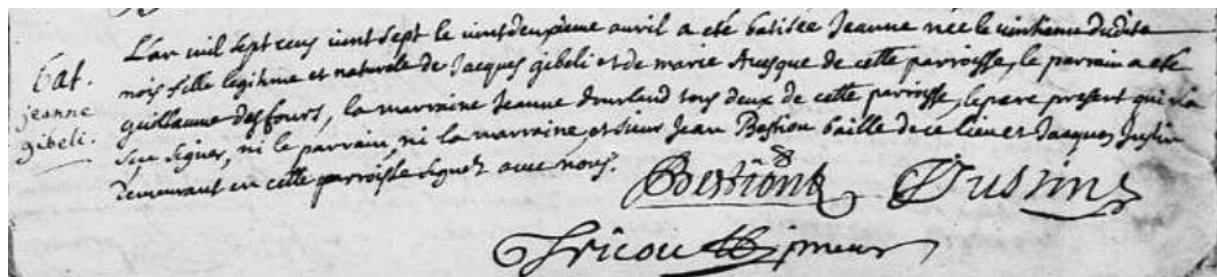 bat.
jeanne
gibeli.
L'an mil sept cens vint sept le vint deuxieme avril a eté batisée Jeanne née le vintieme dudit
mois fille legitime et naturele de Jacques gibeli et de marie Auesque de cette parroisse, le parrain a eté
guillaume desfours, la marraine Jeanne dourland tous deux de cette parroisse, le pere present qui n'a
sçu signer, ni le parrain, ni la marraine, et sieurs Jean Bastion baille de ce lieu et Jacques Justin
demeurant en cette parroisse signez avec nous.
Bastion Justin
Tricou prieur